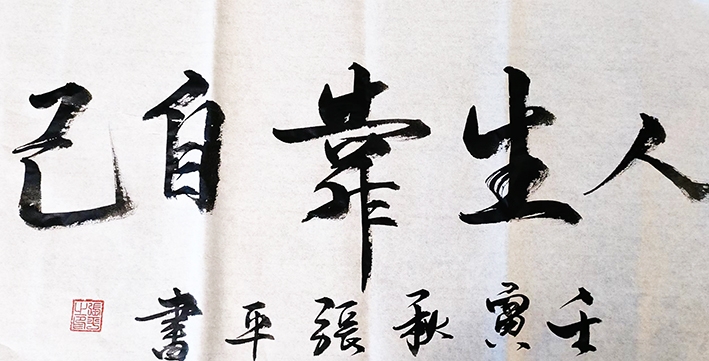 人生靠自己
壬寅秋張平書